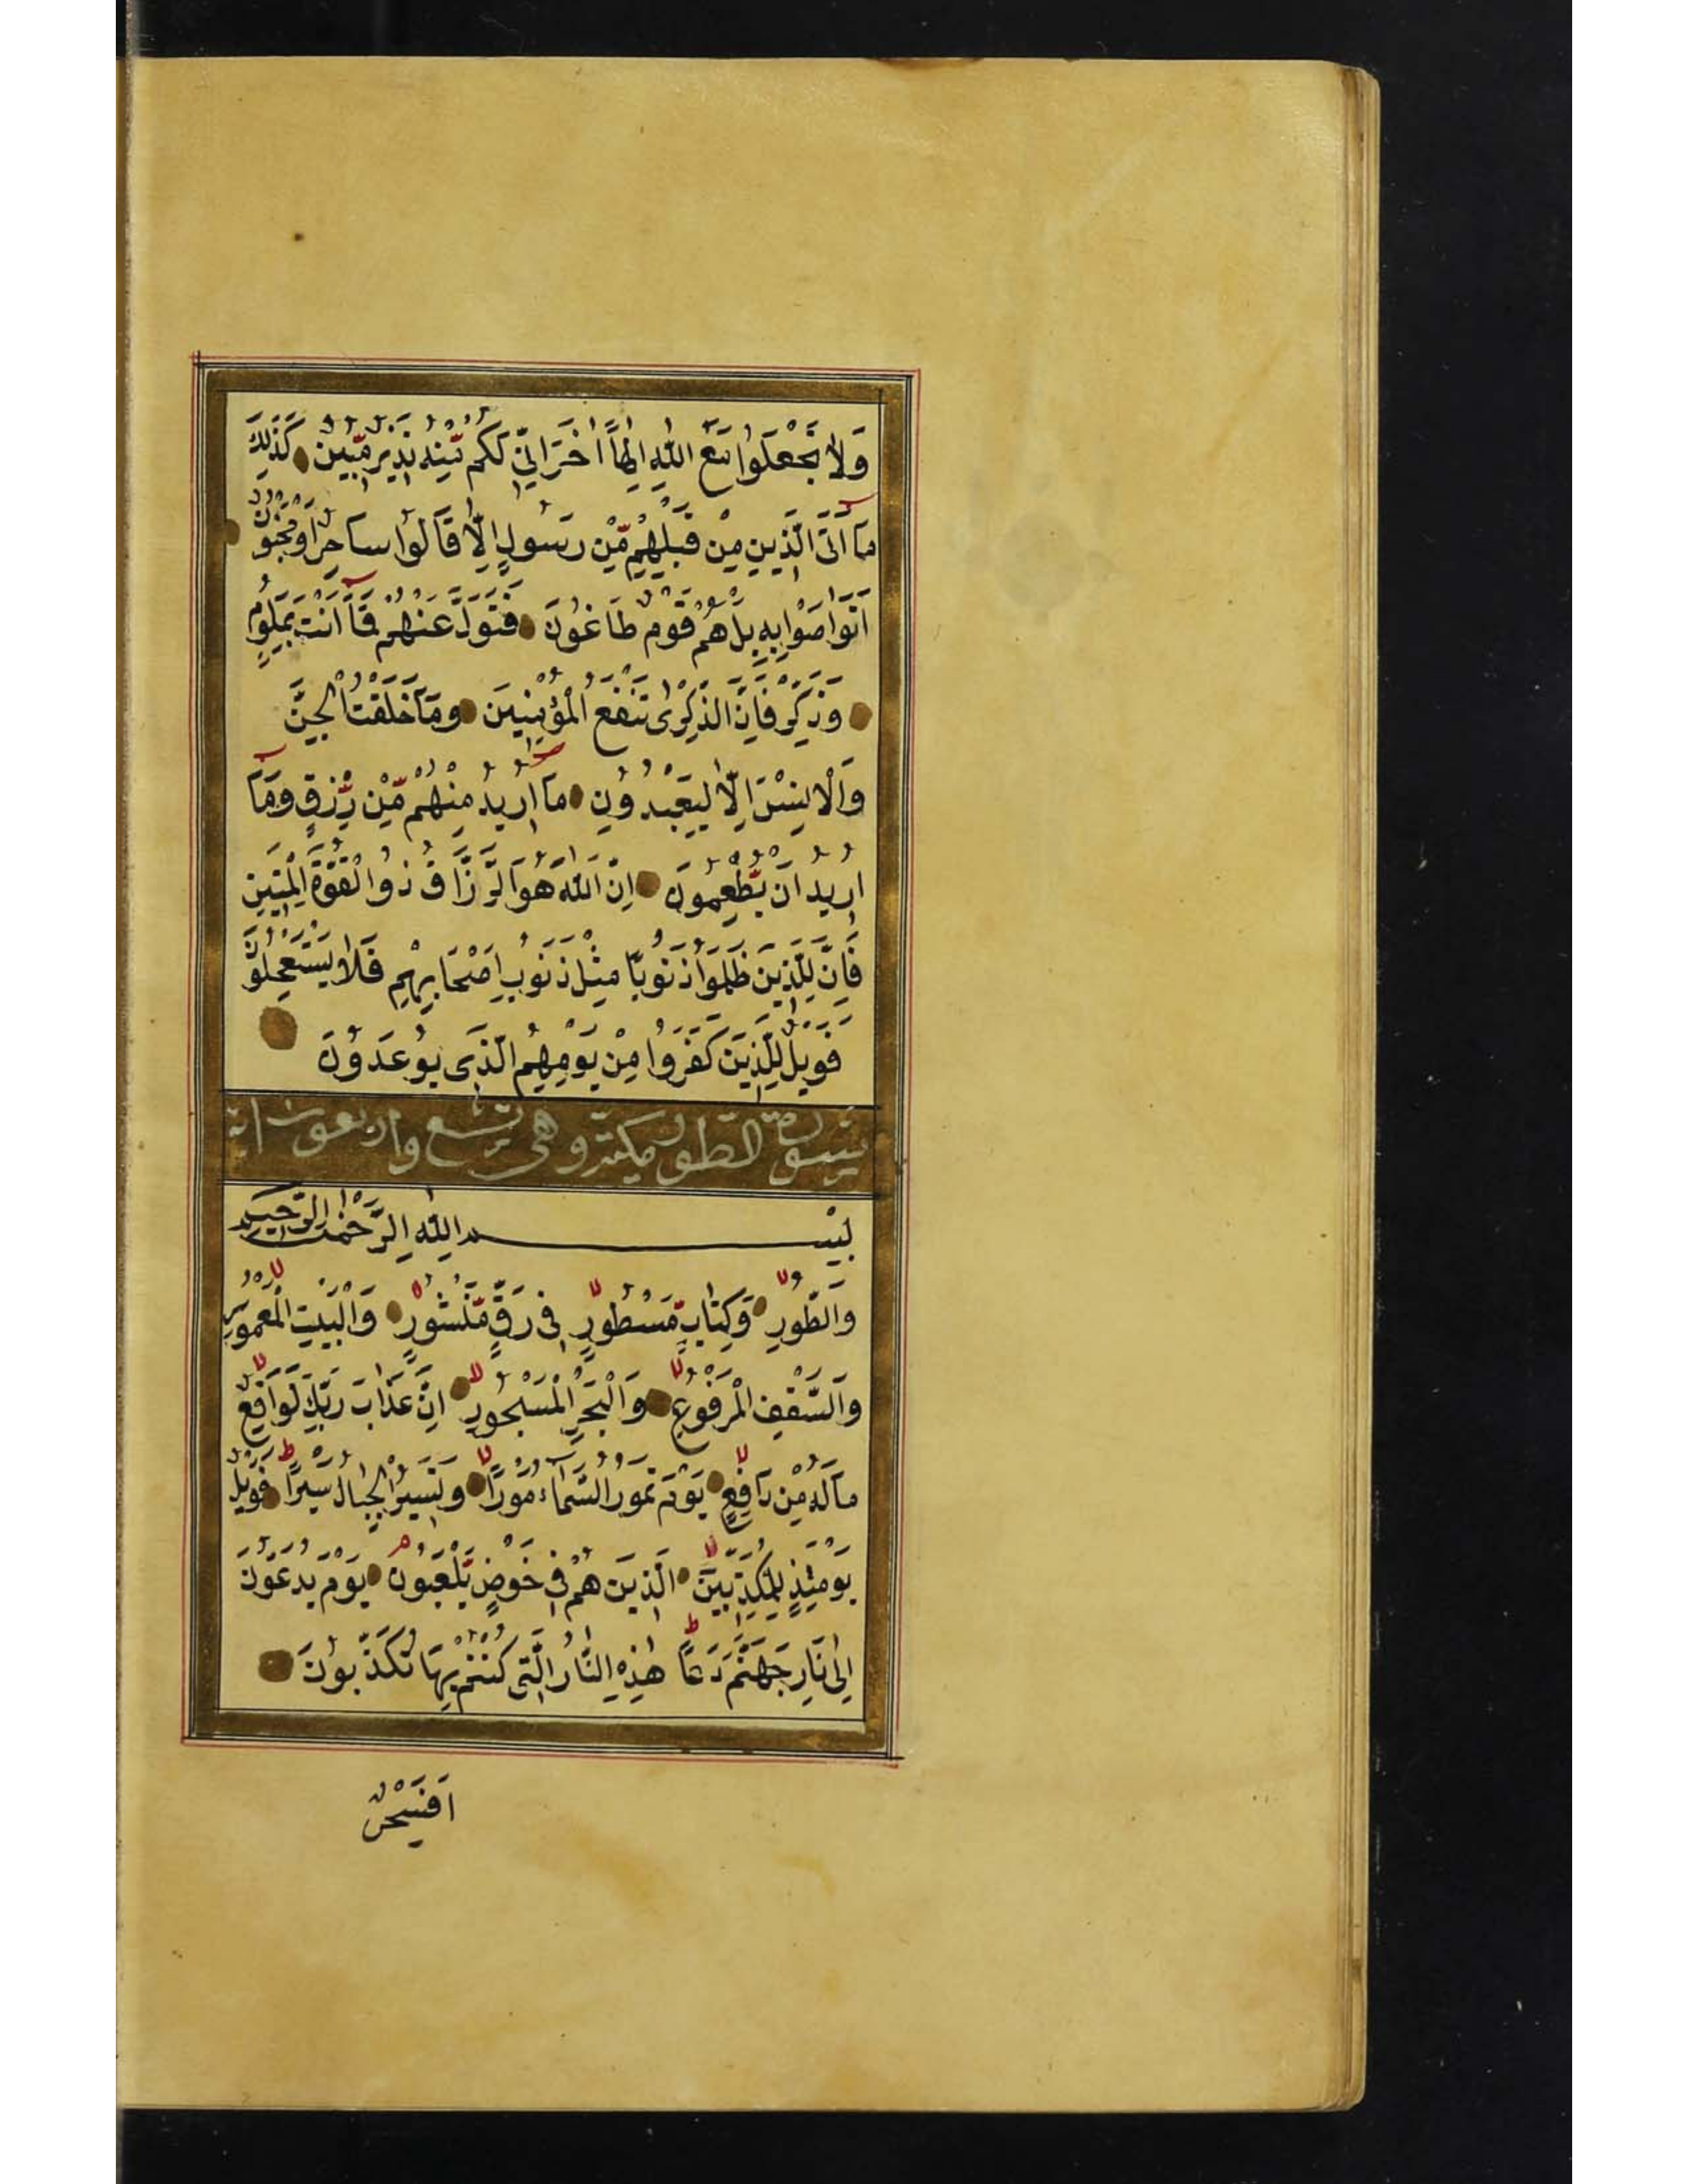 وَلَا تَجْعَلُوا مَعَ اللّٰهِ اِلٰهًا اٰخَرَ اِنِّي لَكُم مِّنْهُ نَذِيرٌ مُّبِينٌ كَذٰلِكَ
مَا اَتَى الَّذِينَ مِنْ قَبْلِهِمْ مِّنْ رَسُولٍ اِلَّا قَالُوا سَاحِرٌ اَوْ مَجْنُونٌ
اَتَوَاصَوْا بِهِ بَلْ هُمْ قَوْمٌ طَاغُونَ فَتَوَلَّ عَنْهُمْ فَمَا اَنْتَ بِمَلُومٍ
وَذَكِّرْ فَاِنَّ الذِّكْرٰى تَنْفَعُ الْمُؤْمِنِينَ وَمَا خَلَقْتُ الْجِنَّ
وَالْاِنْسَ اِلَّا لِيَعْبُدُونِ مَا اُرِيدُ مِنْهُمْ مِّنْ رِّزْقٍ وَمَا
اُرِيدُ اَنْ يُّطْعِمُونِ اِنَّ اللّٰهَ هُوَ الرَّزَّاقُ ذُوا الْقُوَّةِ الْمَتِينِ
فَاِنَّ لِلَّذِينَ ظَلَمُوا ذَنُوبًا مِثْلَ ذَنُوبِ اَصْحَابِهِمْ فَلَا يَسْتَعْجِلُونَ
فَوَيْلٌ لِلَّذِينَ كَفَرُوا مِنْ يَوْمِهِمُ الَّذِى يُوعَدُونَ
سورة الطور مكية وهى تسع واربعون اية
بِسْمِ اللّٰهِ الرَّحْمٰنِ الرَّحِيمِ
وَالطُّورِ وَكِتٰابٍ مَّسْطُورٍ فِى رَقٍّ مَّنْشُورٍ وَالْبَيْتِ الْمَعْمُورِ
وَالسَّقْفِ الْمَرْفُوعِ وَالْبَحْرِ الْمَسْجُورِ اِنَّ عَذَابَ رَبِّكَ لَوَاقِعٌ
مَا لَهُ مِنْ دَافِعٍ يَوْمَ تَمُورُ السَّمَاءُ مَوْرًا وَتَسِيرُ الْجِبَالُ سَيْرًا فَوَيْلٌ
يَوْمَئِذٍ لِلْمُكَذِّبِينَ الَّذِينَ هُمْ فِى خَوْضٍ يَّلْعَبُونَ يَوْمَ يُدَعُّونَ
اِلٰى نَارِ جَهَنَّمَ دَعًّا هٰذِهِ النَّارُ الَّتِى كُنْتُمْ بِهَا تُكَذِّبُونَ
اَفَسِحْرٌ